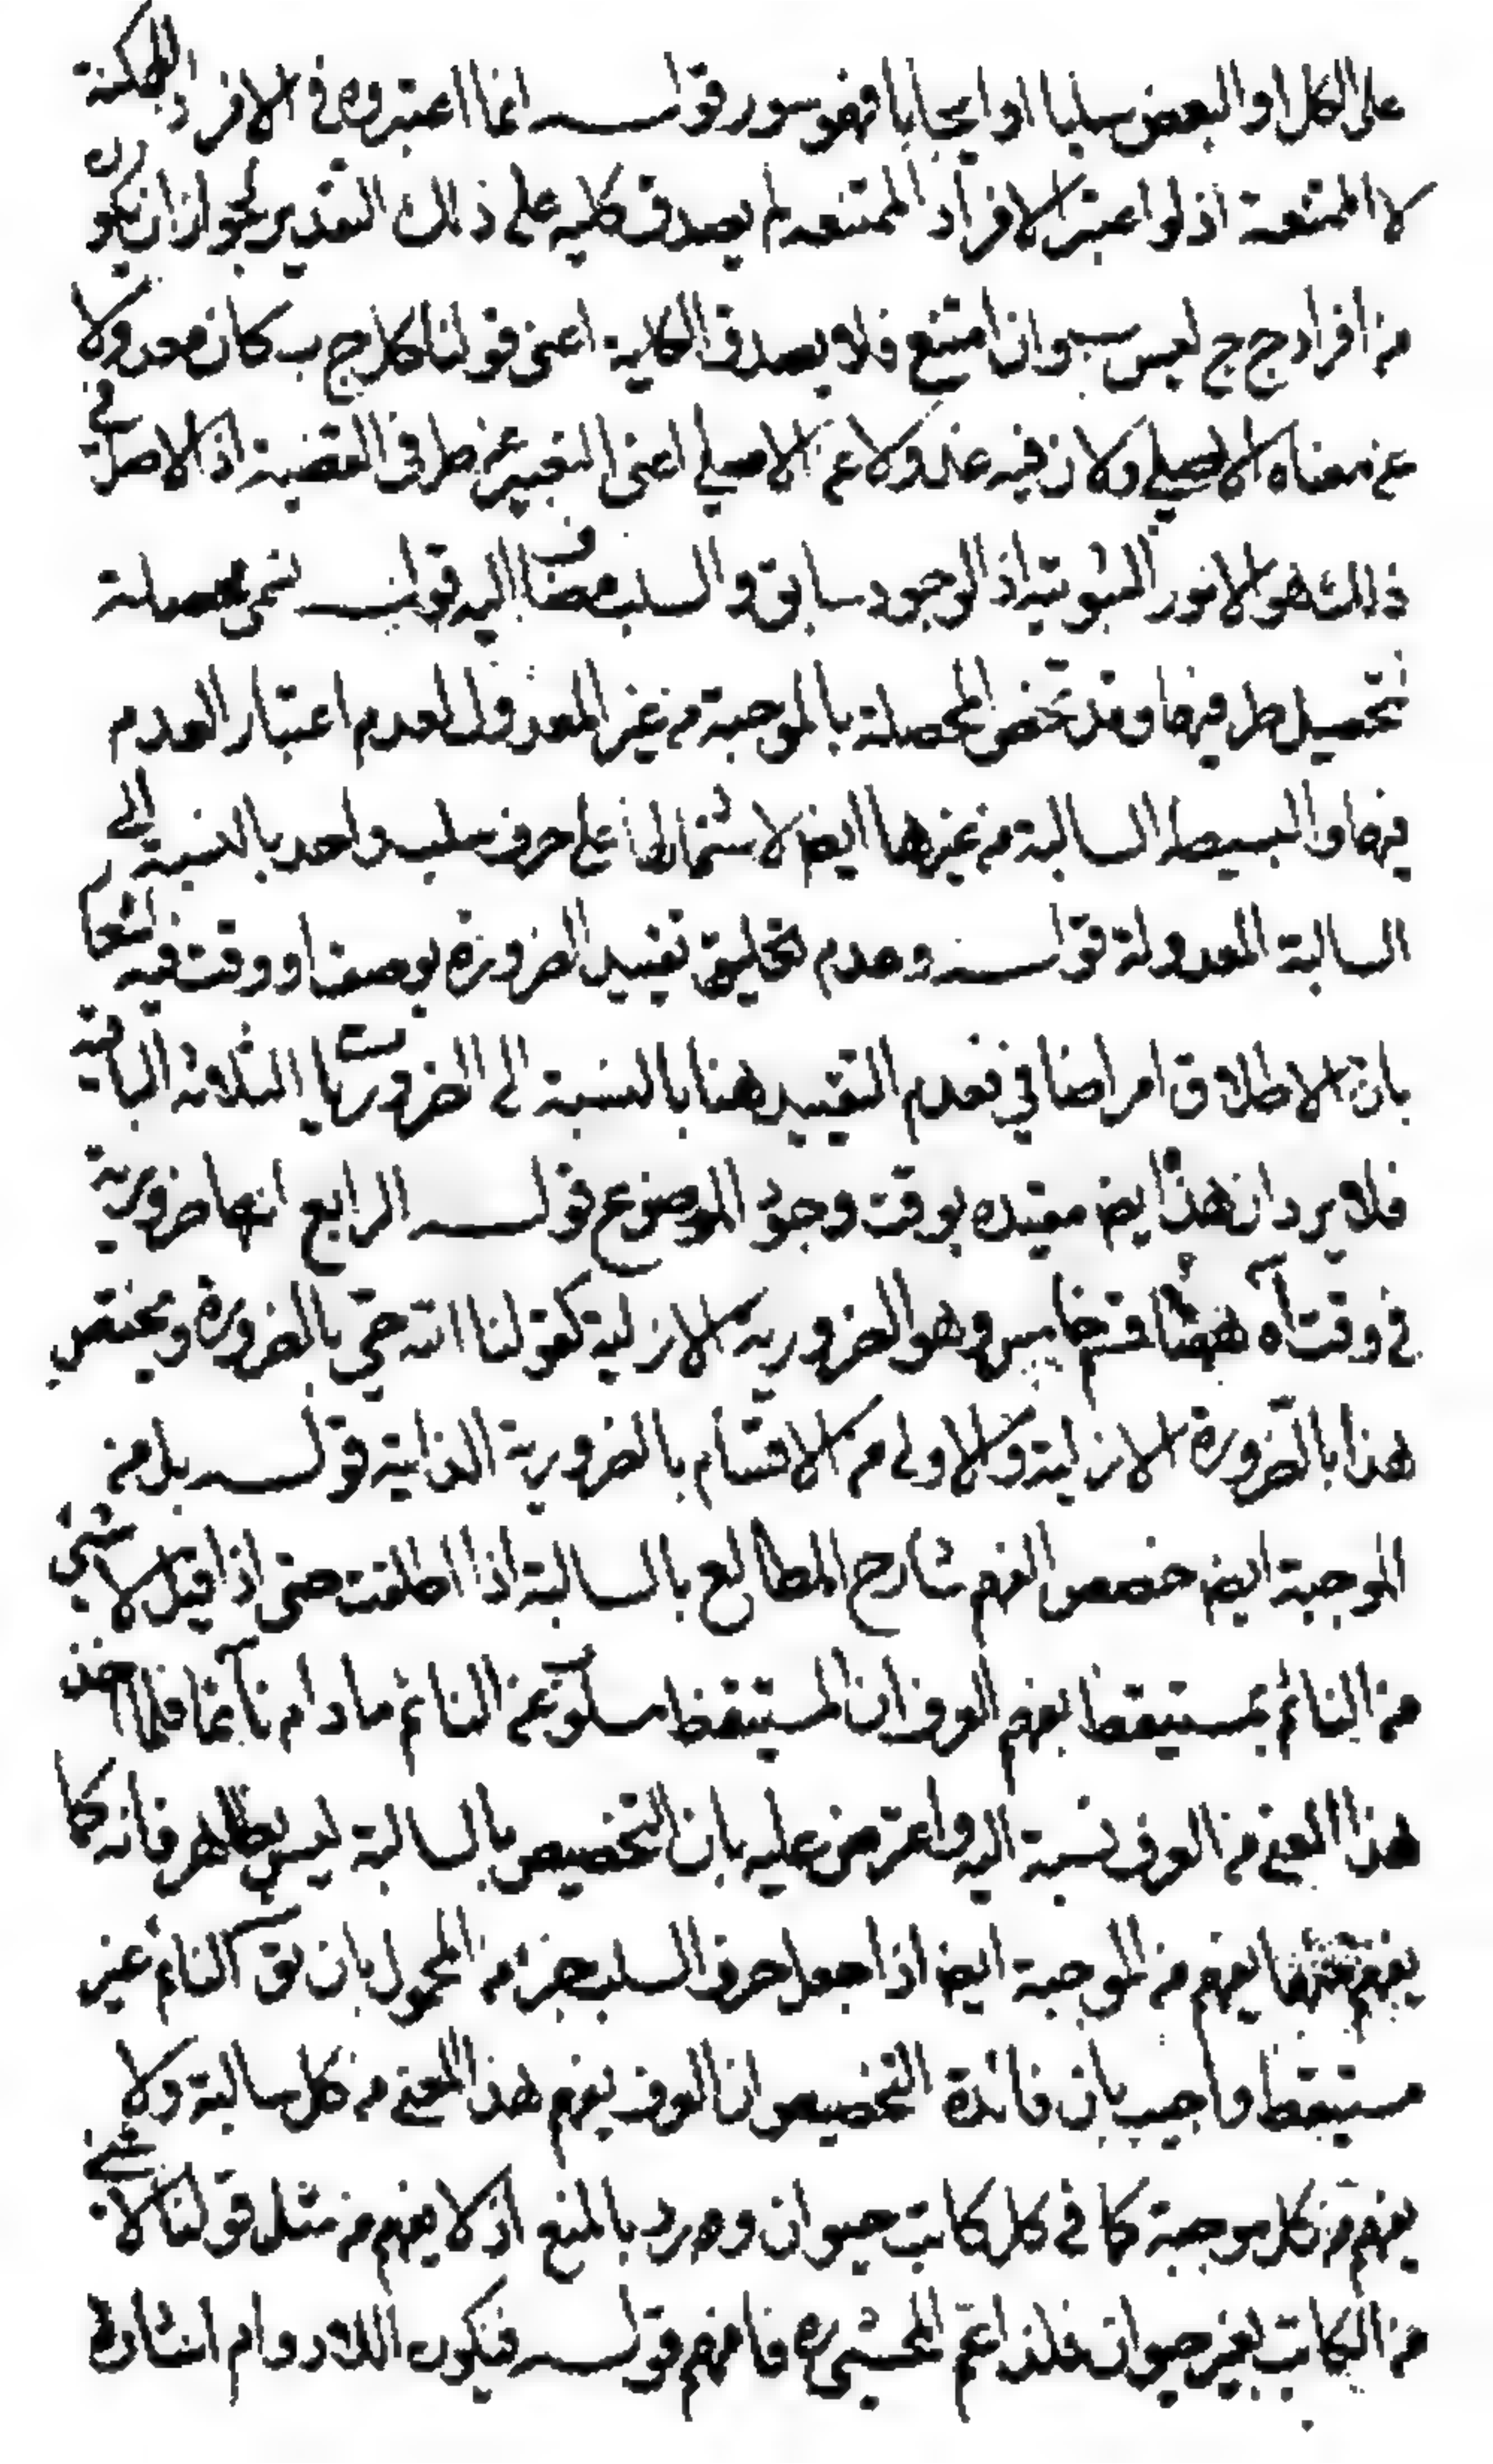 على الكل او البعض سلبا او ايجابا فهو سور قوله انما اعتبروه في الافراد الممكنة
لا الممتنعة اذ لو اعتبر الافراد الممتنعه لم يصدق كليه على ذلك التقدير لجواز ان يكون
من افراد ج ج ليس ب وان امتنع فلا يصدق الكلية اعنى قولنا كل ج ب كان معدولا
عن معناه الاصلي ولان فيه عدولا عن الاصلي اعنى التعبير عن طرفى القضية اذ الاصل في
ذلك هو الامور الثبوتية اذ الوجود سابق والسلب مضاف اليه قوله تسمى محصلة
لتحصيل طرفيها وقد تخص المحصلة بالموجبة من غير المعدول لعدم اعتبار العدم
فيها والبسيط السالبة من غيرها ايض لاشتمالها على حرف سلب واحد بالنسبة الى
السالبة المعدولة قوله وعدم تعليق تقييد الضرورة بوصف او وقت فيه اشعار
بان الاطلاق امر اضافي فعدم التقييد هنا بالنسبة الى الضروريات الثلاثة الباقية
فلا يرد ان هذا ايض مقيده بوقت وجود الموضوع قوله الرابع انها ضرورية
في وقت اه ههنا قسم خامس وهو الضرورية الازلية كقولنا الله حي بالضرورة ويختص
هذا بالضرورة الازلية والاولى من الاقسام بالضرورية الذاتية قوله بل من
الموجبة ايض خصص الفهم شارح المطالع بالسالبة اذا اطلقت حتى اذا قيل لا شئ
من النائم بمستيقظ يفهم العرف ان المستيقظ مسلوب عن النائم ما دام نائما فلما اخذ
هذا المعنى من العرف نسبة اليه واعترض عليه بان التخصيص بالسالبة ليس بظاهر فانه كما
يفهم منها يفهم من الموجبة ايض اذا جعل حرف السلب جزء من المحمول بان يق كل نائم غير
مستيقظ واجيب بان فائدة التخصيص ان العرف يفهم هذا المعنى من كل سالبة ولا
يفهم من كل موجبة كما في كل كاتب حيوان وهو رد بالمنع اذ لا يفهم من مثل قولنا لا شئ
من الكاتب بغير حيوان فلذا عمم المحشى ره فافهم قوله فيكون اللادوام اشارة